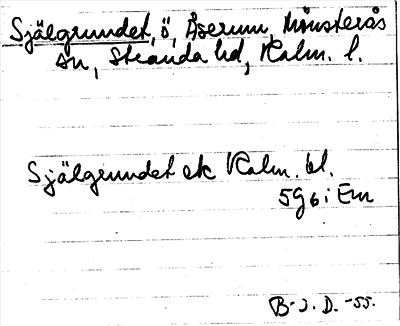 Själgrundet, ö, Åserum, Mönsterås
sn, Stranda hd, Kalm. l.
Själgrundet ek Kalm. bl.
5g6i Em
B-J. D. -55.